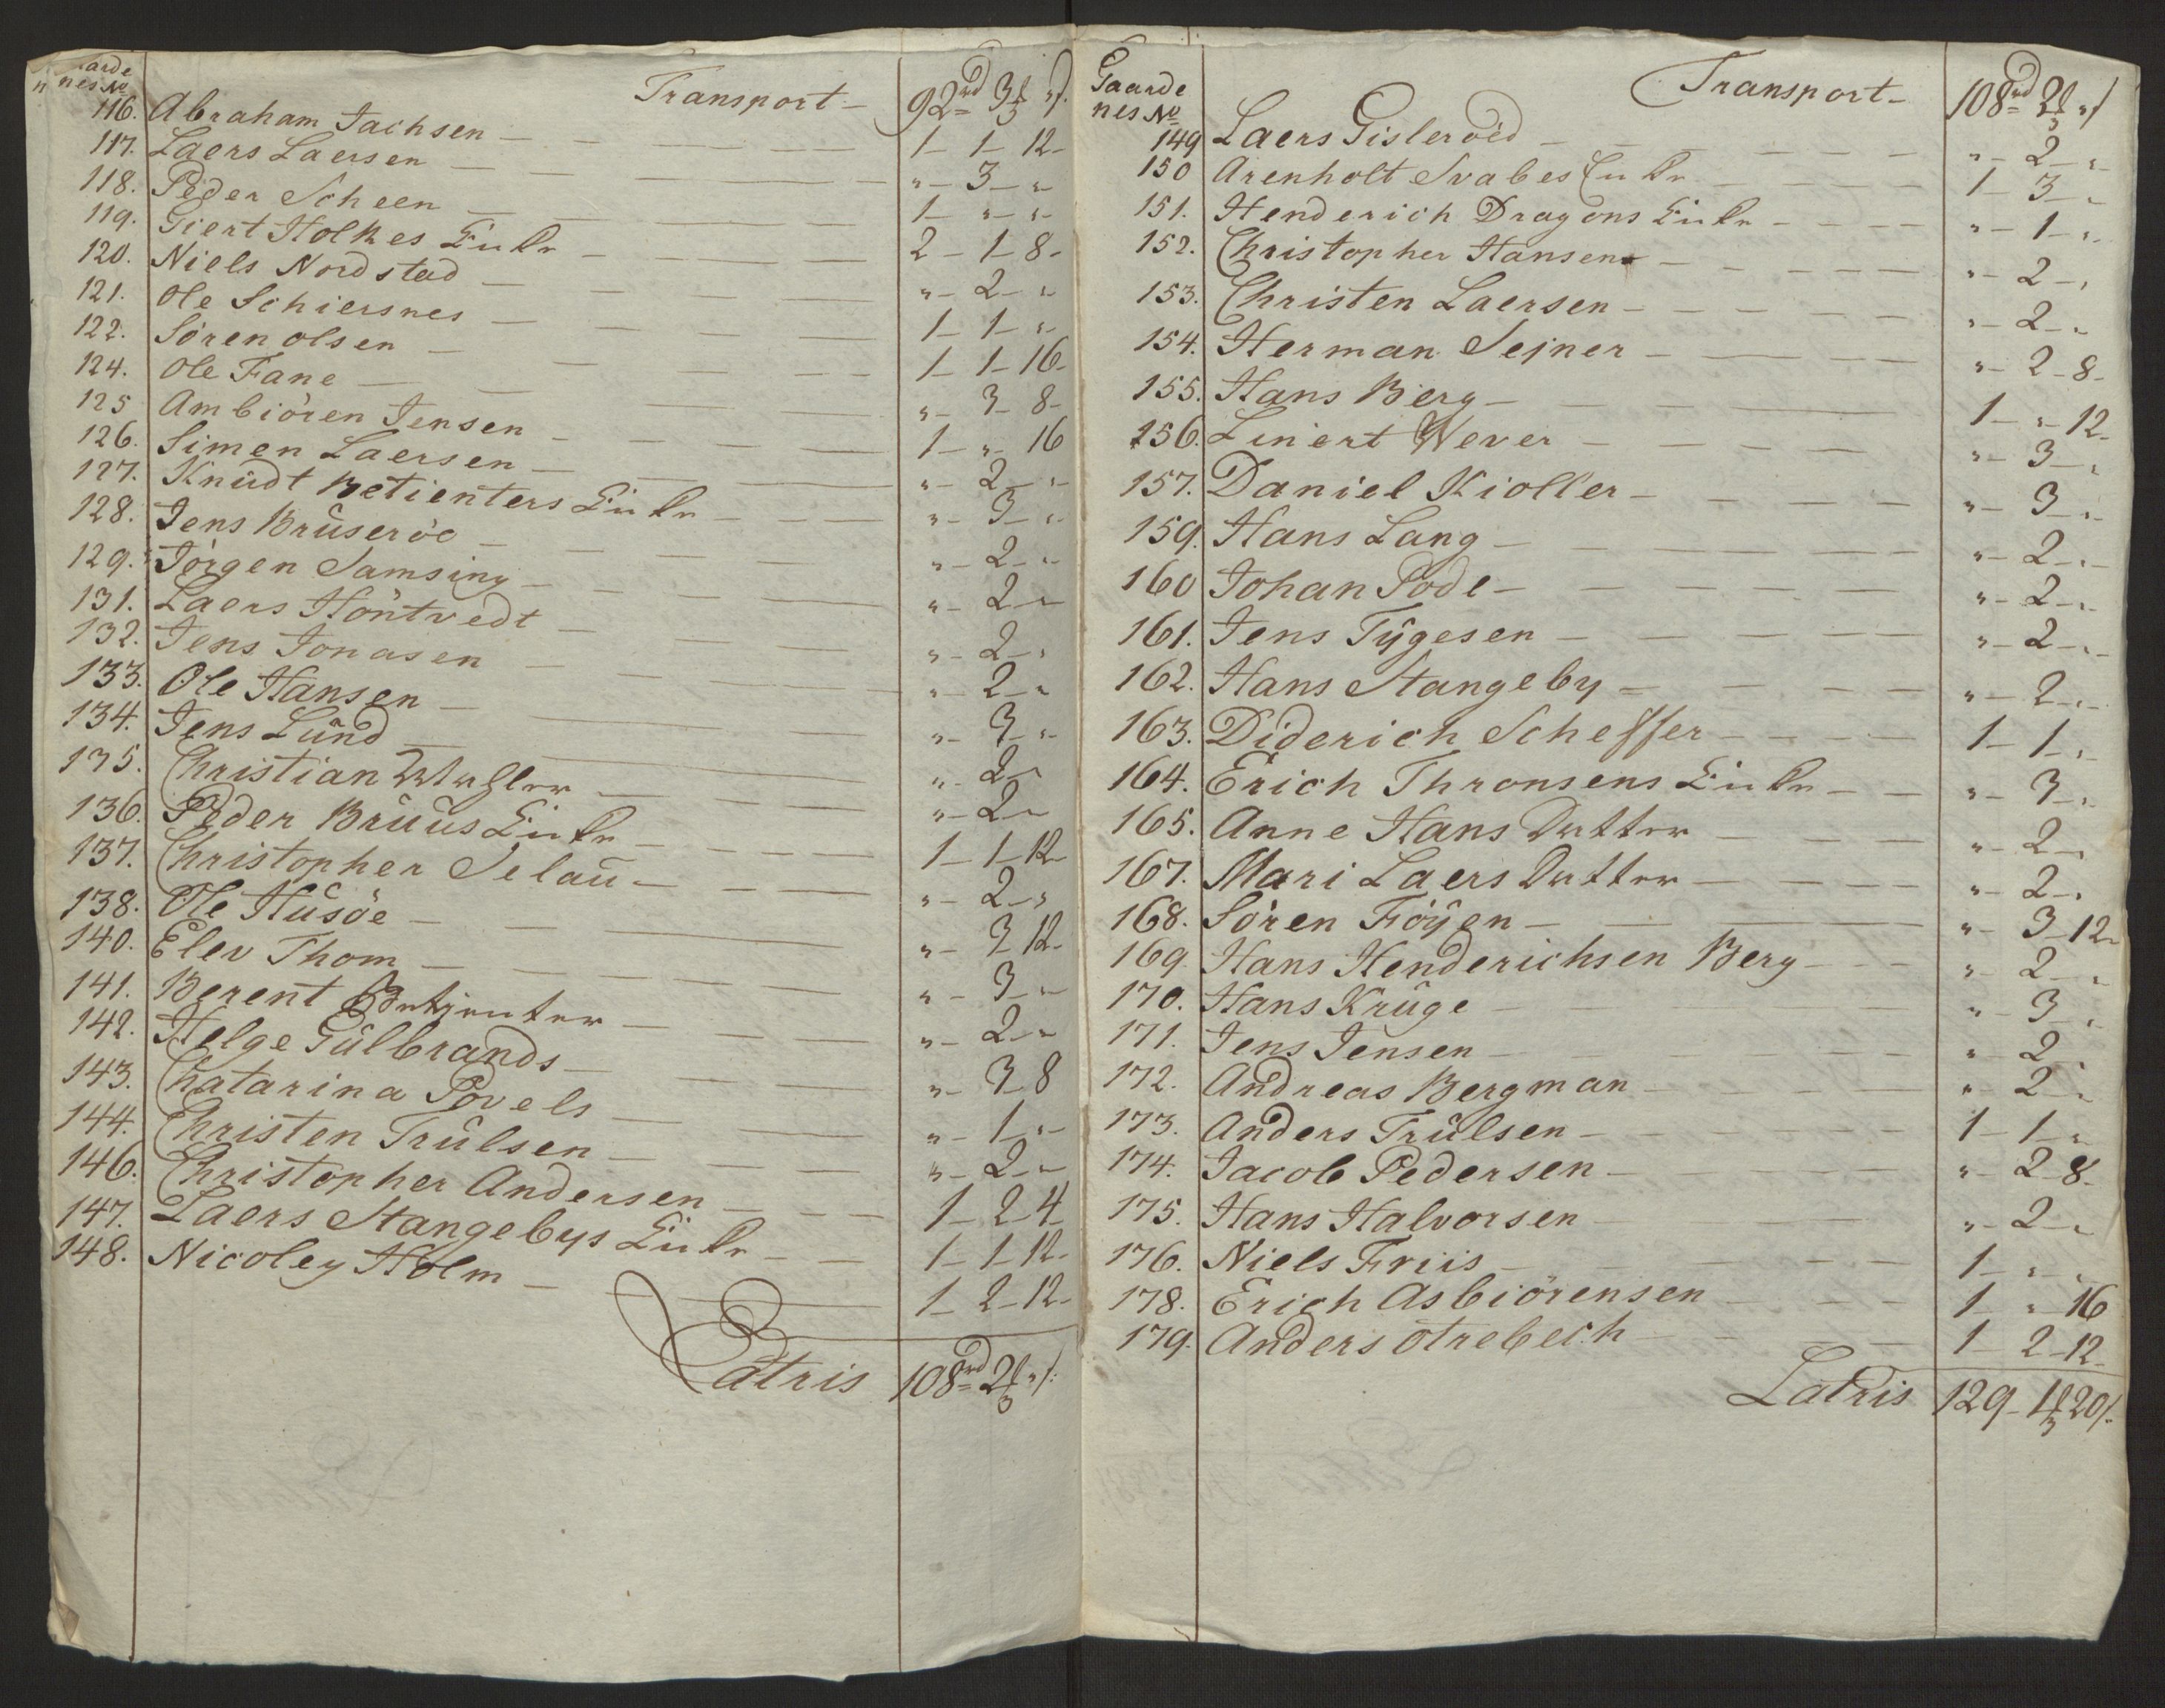 Gaarde
nes No
Transport - 92rd 3f " s.
116. Abraham Jachsen - 1 - 1 - 12 -
117. Laers Laersen - " - 3 - "
118. Peder Scheen - 1 - " - "
119. Giert Holkes Enke - 2 - 1 - 8 -
120. Niels Nordstad - " - 2 - "
121. Ole Schiersnes - 1 - 1 - "
122. Sören olsen - 1 - 1 - 16 -
124. Ole Fane - " - 3 - 8 -
125 Ambiören Jensen - 1 - " - 16
126. Simen Laersen - " - 2 - "
127. Knudt Betienters Enke - " - 3 - "
128. Jens Bruseröe - " - 2 - "
129. Jörgen Samsing - " - 2 - "
131. Laers Höntvedt - " - 2 - "
132. Jens Jonasen - " - 2 - "
133. Ole Hansen - " - 3 - "
134. Jens Lund - " - 2 - "
135. Christian - " - 2 - "
136. Peder Bruus Enke - 1 - 1 - 12 -
137. Christopher Selau - " - 2 - "
138. Ole Husöe - " - 3 - 12 -
140. Elev Thom - " - 3 - "
141. Berent Betienter - " - 2 - "
142. Helge Gulbrands - " - 3 - 8
143. Chatarina Povels - " - 1 - "
144. Christen Trulsen - " - 2 - "
146. Christopher Andersen - 1 - 2 - 4
147. Laers Stangebys Enke - 1 - 1 - 12 -
148. Nicoley Holm - 1 - 2 - 12 -
Latris 108rd 2f " s.
Gaarde
nes No
Transport - 108rd 2f " s
149 Laers Gisleröed - " - 2 - "
150 Arenholt Svabes Enke - 1 - 3 - "
151. Henderich Dragons Enke - " - 1 - "
152. Christopher Hansen - " - 2 - "
153. Christen Laersen - " - 2 - "
154. Herman Sejner - " - 2 - 8 -
155. Hans Berg - 1 - " - 12 -
156. Linert Wever - " - 3 - "
157. Daniel Kioller - " - 3 - "
159. Hans Lang - " - 2 - "
160 Johan Pode - " - 2 - "
161. Jens Tÿgesen - " - 2 - "
162. Hans Stangeby - " - 2 - "
163. Diderich Scheffer - 1 - 1 - "
164. Erich Thronsens Enke - " - 3 - "
165. Anne Hans Datter - " - 2 - "
167. Mari Laers Datter - " - 2 - "
168. Sören Föÿen - " - 3 - 12 -
169. Hans Henderichsen Berg - " - 2 - "
170. Hans Kruge - " - 3 - "
171. Jens Jensen - " 2 - "
172. Andreas Bergman - " 2 - "
173. Anders Trulsen - 1 - 1 - "
174. Jacob Pedersen - " - 2 - 8 -
175. Hans Halvorsen - " - 2 - "
176. Niels Friis - 1 - " - "
178. Erich Asbiörensen - 1 - " - 16
179. Anders otrebech - 1 - 2 - 12 -
Latris 129 - 1f 20s.